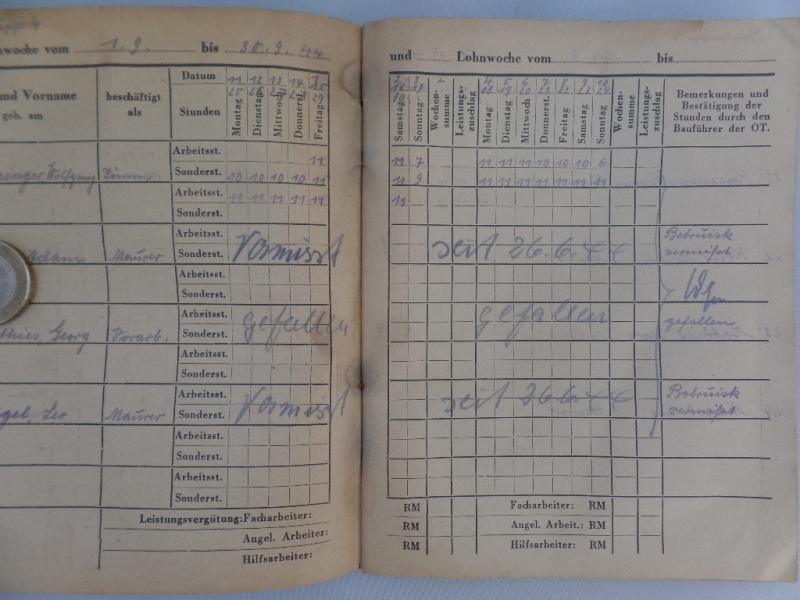 Lohnwoche vom 1.9. bis 30.9.44
und Lohnwoche vom bis
und Vorname
geb. am
beschäftigt
als
Datum 11 12 13 14
25 26 27 28 29
Stunden
Montag Dienstag Mittwoch Donnerst. Freitag
Samstag Sonntag Wochen-summe Leistungs-zuschlag Montag Dienstag Mittwoch Donnerst. Freitag Samstag Sonntag Wochen-summe Leistungs-zuschlag
Bemerkungen und
Bestätigung der
Stunden durch den
Bauführer der OT.
Arbeitsst. 11 11 7 11 11 11 10 10 10 6
Wolfgang Sonderst. 10 10 10 10 11 11 9 11 11 11 11 11 11 11
Arbeitsst. 11 11 11 11 11 11
Sonderst.
Arbeitsst.
Adam Maurer Sonderst. Vermisst seit 26.6.44 Bobruisk
vermißt
Arbeitsst.
Sonderst.
Arbeitsst.
Georg Vorarb. Sonderst. gefallen gefallen gefallen
Arbeitsst.
Sonderst.
Arbeitsst.
Leo Maurer Sonderst. Vermisst seit 26.6.44 Bobruisk
vermißt
Arbeitsst.
Sonderst.
Arbeitsst.
Sonderst.
Leistungsvergütung: Facharbeiter: RM Facharbeiter: RM
Angel. Arbeiter: RM Angel. Arbeit.: RM
Hilfsarbeiter: RM Hilfsarbeiter: RM